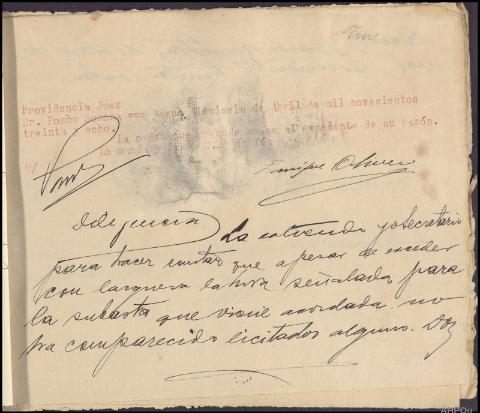 Providencia Juez
Sr. Pombo Somoza === Barco dieciseis de Abril de mil novecientos
treinta y ocho.
La orden que precede unase al expediente de su razón.
Lo mandó y firma S.S. doy fe
Diligencia La extiendo yo Secretario
para hacer constar que apesar de exceder
con largueza la hora señalada para
la subasta que viene acordada no
ha comparecido licitador alguno. Doy
AHPOu